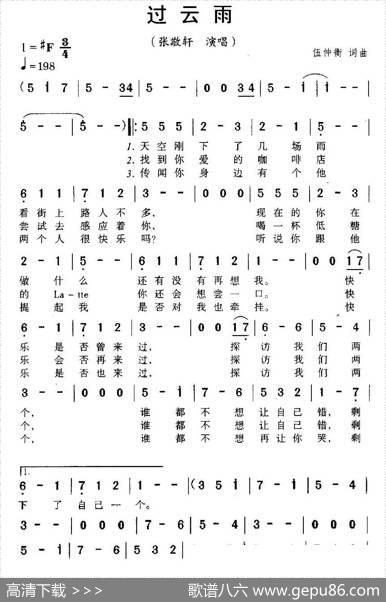 过云雨
(张敬轩 演唱)
1=♯F 3/4
♩=198
伍仲衡 词曲
(5 1 7 | 5 - 34 | 5 - 1 | 7 - - | 0 0 34 | 5 - 1 | 1 - - |
5 - - | 5 - -) ‖: 5 5 5 | 2 5 5 | 2 5 5 | 5 - - |
1.天空刚下了几场雨
2.找到你爱的咖啡店
3.传闻你身边有个他
6 1 1 | 7 1 2 | 3 - - | 0 0 0 | 5 5 5 | 2 5 5 |
看街上路人不多, 现在的你在
尝试去感应着你, 喝一杯低糖
两个人很快乐吗? 听说你跟他
2 - 1 | 7 - - | 6 1 1 | 7 1 2 | 3 - - | 0 0 17 |
做什么 还有没有再想我。 快
的La-tte 你还会想尝一口。 快
提起我 是否对我也牵挂。 快
6 - 1 | 7 1 2 | 3 - - | 0 0 17 | 6 - 1 | 7 1 2 |
乐是否曾来过, 探访我们两
乐会否再来过, 探访我们两
乐是否也来过, 探访我们两
3 - - | 0 0 0 | 5 - 1 | 7 - 6 | 5 3 2 | 5 - 1 |
个, 谁都不想让自己错,剩
个, 谁都不想让自己错,剩
个, 谁都不想再让你哭,剩
1.
6 - 1 | 7 - 2 | 1 - - | 1 - - | (3 5 1 | 7 - 5 |
下了自己一个。
3 - - | 0 0 0 | 0 0 0 | 3 5 1 | 7 - 1 | 2 - - |
5 - 1 | 7 - 5 |
高清下载 >>>
歌谱八六 www.gepu86.com